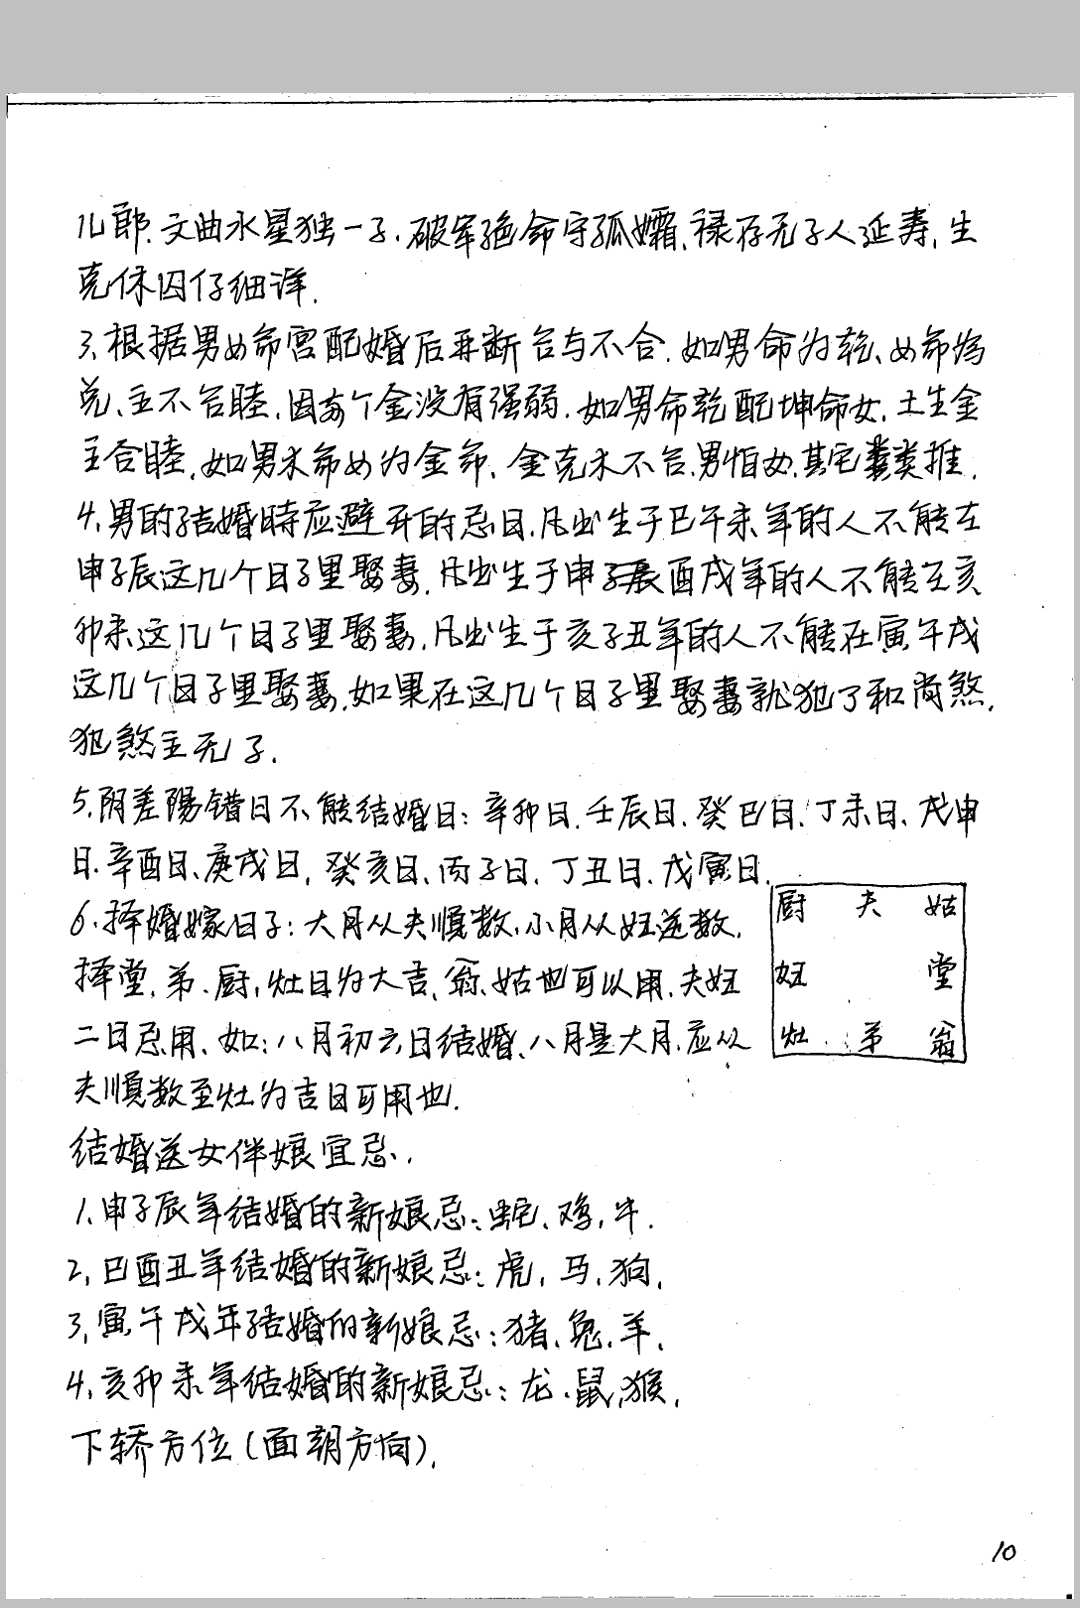 儿郎.文曲水星独一子.破军绝命守孤孀.禄存无子人延寿,生
克休囚仔细详.
3、根据男女命宫配婚后再断合与不合.如男命为乾、女命为
兑、主不合睦,因两个金没有强弱.如男命乾配坤命女,土生金
主合睦,如男木命女为金命,金克木不合.男怕女.其它类推.
4、男的结婚時应避开的忌日.凡出生于巳午未年的人不能在
申子辰这几个日子里娶妻.凡出生于申子辰酉戌年的人不能在亥
卯未这几个日子里娶妻.凡出生于亥子丑年的人不能在寅午戌
这几个日子里娶妻.如果在这几个日子里娶妻就犯了和尚煞.
犯煞主无子.
5.阴差陽错日不能结婚日:辛卯日.壬辰日.癸巳日.丁未日、戊申
日.辛酉日、庚戌日,癸亥日、丙子日.丁丑日.戊寅日.
6.择婚嫁日子:大月从夫順数,小月从妇逆数.
择堂,弟.厨,灶日为大吉、翁、姑也可以用.夫妇
二日忌用、如:八月初六日结婚、八月是大月.应从
夫順数至灶为吉日可用也.
厨 夫 姑
妇 堂
灶 弟 翁
结婚送女伴娘宜忌.
1、申子辰年结婚的新娘忌:蛇、鸡,牛.
2,巳酉丑年结婚的新娘忌:虎,马,狗.
3,寅午戌年结婚的新娘忌:猪、兔.羊.
4,亥卯未年结婚的新娘忌:龙.鼠,猴.
下轿方位(面朝方向).
10